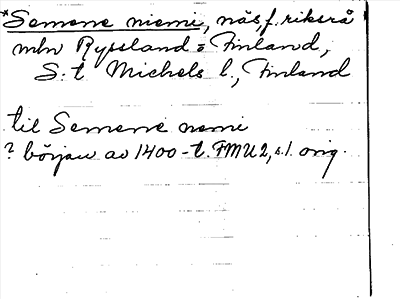 *Semene niemi, näs, f. riksrå
mln Ryssland = Finland,
S:t Michels l., Finland
til Semene nemi
? början av 1400-t. FMU 2, s. 1. orig.